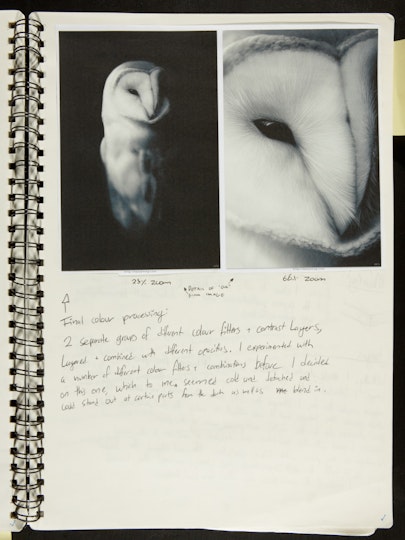 23% zoom
66% zoom
Detail of "owl" from image
Final colour processing
2 separate groups of different colour filters + contrast layers,
Layered + combined with different opacities. I experimented with
a number of different colour filters + combinations before I decided
on this one, which to me seemed cold and detached and
could stand out at certain parts from the dark as well as blend in.